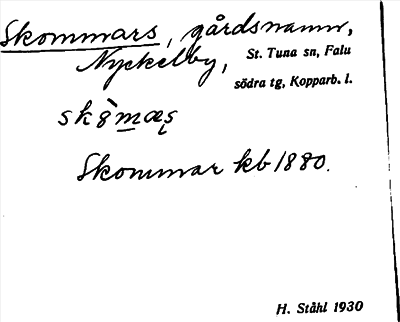 Skommars, gårdsnamn,
Nyckelby, St. Tuna sn, Falu
södra tg, Kopparb. l.
Skommar kb 1880.
H. Ståhl 1930